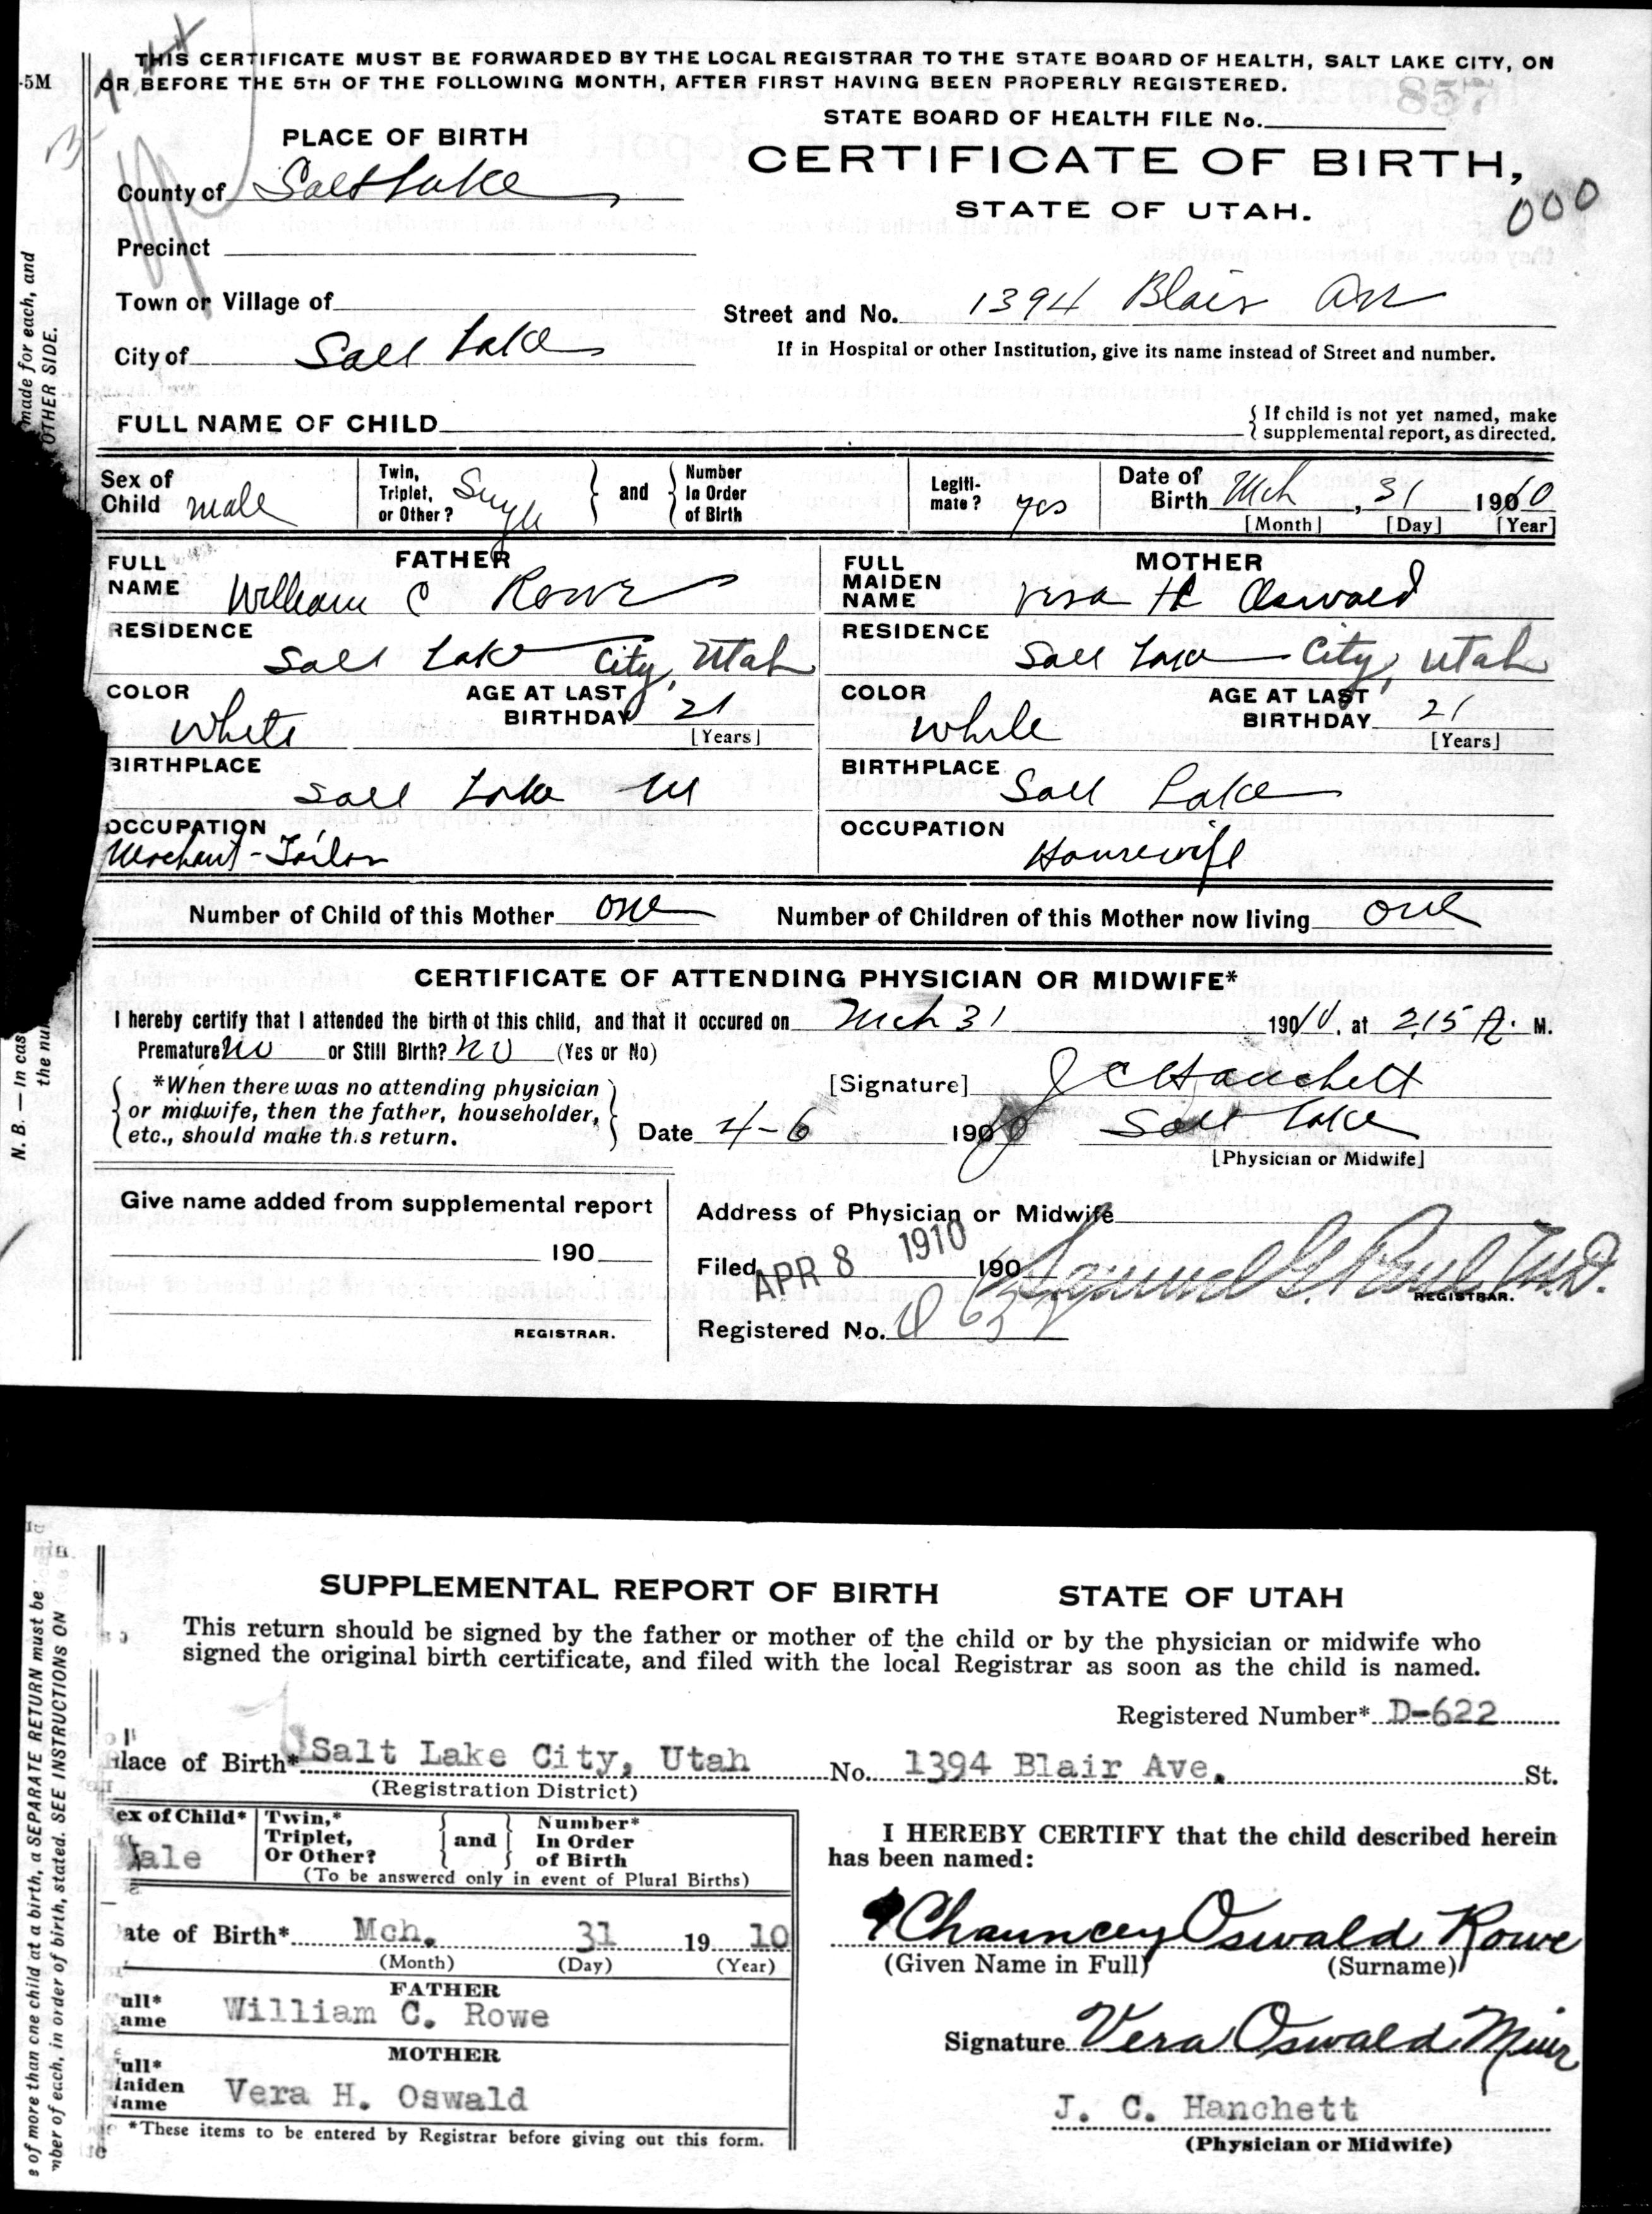 THIS CERTIFICATE MUST BE FORWARDED BY THE LOCAL REGISTRAR TO THE STATE BOARD OF HEALTH, SALT LAKE CITY, ON
OR BEFORE THE 5TH OF THE FOLLOWING MONTH, AFTER FIRST HAVING BEEN PROPERLY REGISTERED.
-5M
857
STATE BOARD OF HEALTH FILE No.
PLACE OF BIRTH
CERTIFICATE OF BIRTH,
County of Salt Lake
STATE OF UTAH.
000
Precinct
Town or Village of
Street and No. 1394 Blair Ave
City of Salt Lake
If in Hospital or other Institution, give its name instead of Street and number.
FULL NAME OF CHILD
{ If child is not yet named, make
supplemental report, as directed.
Sex of Child male
Twin, Triplet, or Other? Single
and
Number In Order of Birth
Legiti-mate? yes
Date of Birth Mch, 31 1910
[Month] [Day] [Year]
FATHER
FULL NAME William C Rowe
MOTHER
FULL MAIDEN NAME Vera H Oswald
RESIDENCE Salt Lake City, Utah
RESIDENCE Salt Lake City, Utah
COLOR White
AGE AT LAST BIRTHDAY 21
[Years]
COLOR White
AGE AT LAST BIRTHDAY 21
[Years]
BIRTHPLACE Salt Lake Ut
BIRTHPLACE Salt Lake
OCCUPATION Merchant-Tailor
OCCUPATION Housewife
Number of Child of this Mother one
Number of Children of this Mother now living one
CERTIFICATE OF ATTENDING PHYSICIAN OR MIDWIFE*
I hereby certify that I attended the birth of this child, and that it occured on Mch 31 1910, at 215 A. M.
Premature no or Still Birth? no (Yes or No)
*When there was no attending physician
or midwife, then the father, householder,
etc., should make this return.
[Signature] J C Hanchett
Date 4-6 1910 Salt Lake
[Physician or Midwife]
Give name added from supplemental report
190
REGISTRAR.
Address of Physician or Midwife
Filed APR 8 1910 190 Samuel G. Paul M.D.
REGISTRAR.
Registered No. D 622
made for each, and
OTHER SIDE.
N. B.—In cas
the nu
SUPPLEMENTAL REPORT OF BIRTH STATE OF UTAH
This return should be signed by the father or mother of the child or by the physician or midwife who
signed the original birth certificate, and filed with the local Registrar as soon as the child is named.
Registered Number* D-622
lace of Birth* Salt Lake City, Utah No. 1394 Blair Ave. St.
(Registration District)
ex of Child* Male
Twin,* Triplet, Or Other?
and
Number* In Order of Birth
(To be answered only in event of Plural Births)
ate of Birth* Mch. 31 19 10
(Month) (Day) (Year)
FATHER
ull* ame William C. Rowe
MOTHER
ull* Maiden Name Vera H. Oswald
*These items to be entered by Registrar before giving out this form.
I HEREBY CERTIFY that the child described herein
has been named:
Chauncey Oswald Rowe
(Given Name in Full) (Surname)
Signature Vera Oswald Muir
J. C. Hanchett
(Physician or Midwife)
s of more than one child at a birth, a SEPARATE RETURN must be
nber of each, in order of birth, stated. SEE INSTRUCTIONS ON